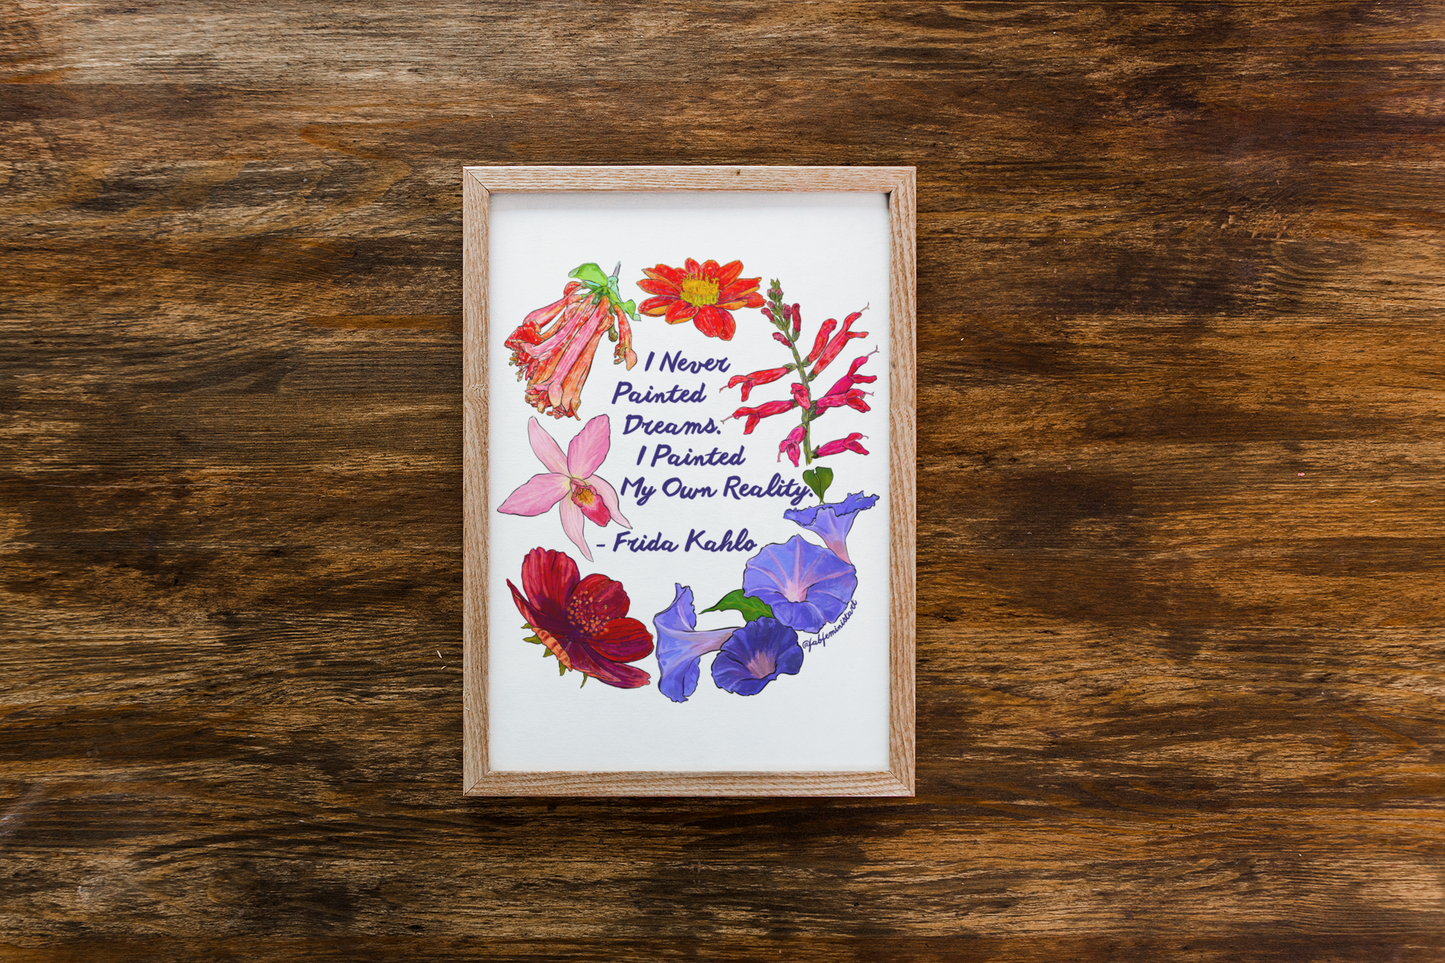 I Never
Painted
Dreams.
I Painted
My Own Reality.
- Frida Kahlo
@fabfeministart